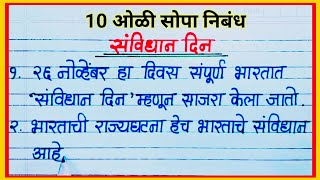 10 ओळी सोपा निबंध
संविधान दिन
१. २६ नोव्हेंबर हा दिवस संपूर्ण भारतात
'संविधान दिन' म्हणून साजरा केला जातो.
२. भारताची राज्यघटना हेच भारताचे संविधान
आहे.